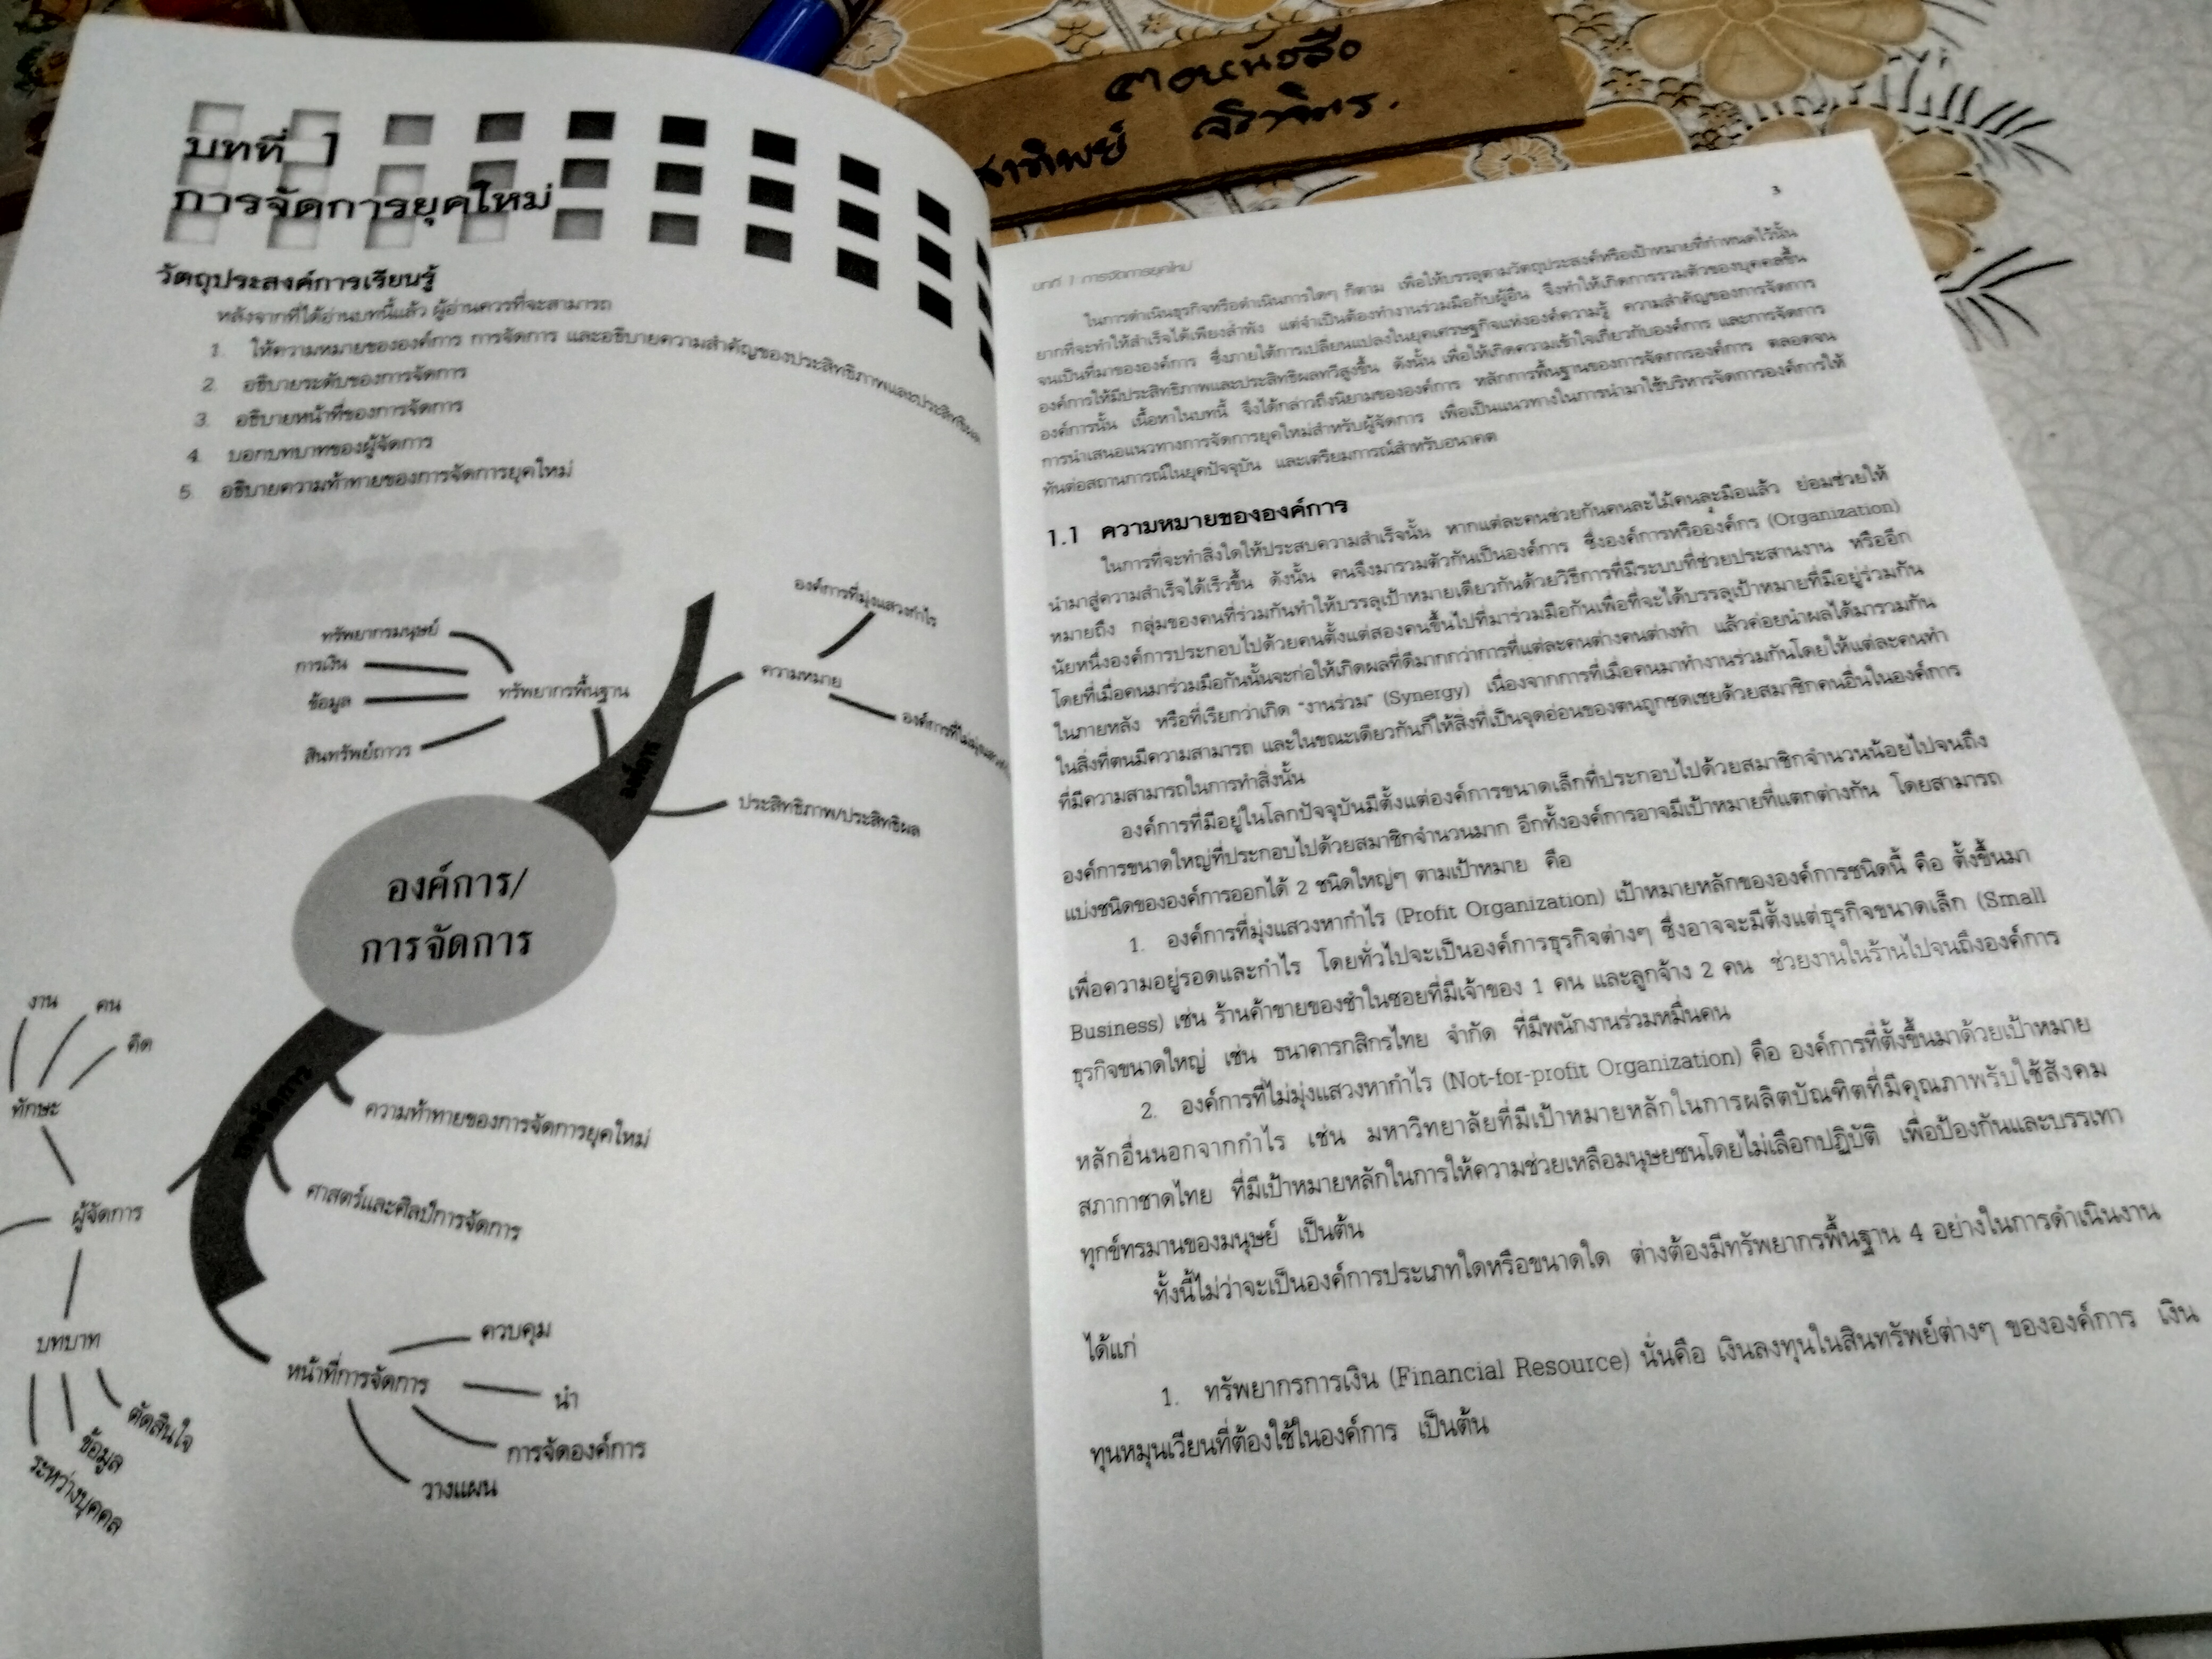 ขอหนังสือ
บทที่ 1
การจัดการยุคใหม่
วัตถุประสงค์การเรียนรู้
หลังจากที่ได้อ่านบทนี้แล้ว ผู้อ่านควรที่จะสามารถ
1. ให้ความหมายขององค์การ การจัดการ และอธิบายความสำคัญของประสิทธิภาพและประสิทธิผล
2. อธิบายระดับของการจัดการ
3. อธิบายหน้าที่ของการจัดการ
4. บอกบทบาทของผู้จัดการ
5. อธิบายความท้าทายของการจัดการยุคใหม่
องค์การที่มุ่งแสวงกำไร
ทรัพยากรมนุษย์
การเงิน
ข้อมูล
สินทรัพย์ถาวร
ทรัพยากรพื้นฐาน
ความหมาย
องค์การที่ไม่มุ่งแสวง
องค์การ
ประสิทธิภาพ/ประสิทธิผล
องค์การ/
การจัดการ
งาน
คน
คิด
ทักษะ
การจัดการ
ความท้าทายของการจัดการยุคใหม่
ศาสตร์และศิลป์การจัดการ
ผู้จัดการ
บทบาท
ตัดสินใจ
ข้อมูล
ระหว่างบุคคล
หน้าที่การจัดการ
ควบคุม
นำ
การจัดองค์การ
วางแผน
3
บทที่ 1 การจัดการยุคใหม่
ในการดำเนินธุรกิจหรือดำเนินการใดๆ ก็ตาม เพื่อให้บรรลุตามวัตถุประสงค์หรือเป้าหมายที่กำหนดไว้นั้น
ยากที่จะทำให้สำเร็จได้เพียงลำพัง แต่จำเป็นต้องทำงานร่วมมือกับผู้อื่น จึงทำให้เกิดการรวมตัวของบุคคลขึ้น
จนเป็นที่มาขององค์การ ซึ่งภายใต้การเปลี่ยนแปลงในยุคเศรษฐกิจแห่งองค์ความรู้ ความสำคัญของการจัดการ
องค์การให้มีประสิทธิภาพและประสิทธิผลทวีสูงขึ้น ดังนั้น เพื่อให้เกิดความเข้าใจเกี่ยวกับองค์การ และการจัดการ
องค์การนั้น เนื้อหาในบทนี้ จึงได้กล่าวถึงนิยามขององค์การ หลักการพื้นฐานของการจัดการองค์การ ตลอดจน
การนำเสนอแนวทางการจัดการยุคใหม่สำหรับผู้จัดการ เพื่อเป็นแนวทางในการนำมาใช้บริหารจัดการองค์การให้
ทันต่อสถานการณ์ในยุคปัจจุบัน และเตรียมการณ์สำหรับอนาคต
1.1 ความหมายขององค์การ
ในการที่จะทำสิ่งใดให้ประสบความสำเร็จนั้น หากแต่ละคนช่วยกันคนละไม้คนละมือแล้ว ย่อมช่วยให้
นำมาสู่ความสำเร็จได้เร็วขึ้น ดังนั้น คนจึงมารวมตัวกันเป็นองค์การ ซึ่งองค์การหรือองค์กร (Organization)
หมายถึง กลุ่มของคนที่ร่วมกันทำให้บรรลุเป้าหมายเดียวกันด้วยวิธีการที่มีระบบที่ช่วยประสานงาน หรืออีก
นัยหนึ่งองค์การประกอบไปด้วยคนตั้งแต่สองคนขึ้นไปที่มาร่วมมือกันเพื่อที่จะได้บรรลุเป้าหมายที่มีอยู่ร่วมกัน
โดยที่เมื่อคนมาร่วมมือกันนั้นจะก่อให้เกิดผลที่ดีมากกว่าการที่แต่ละคนต่างคนต่างทำ แล้วค่อยนำผลได้มารวมกัน
ในภายหลัง หรือที่เรียกว่าเกิด "งานร่วม" (Synergy) เนื่องจากการที่เมื่อคนมาทำงานร่วมกันโดยให้แต่ละคนทำ
ในสิ่งที่ตนมีความสามารถ และในขณะเดียวกันก็ให้สิ่งที่เป็นจุดอ่อนของตนถูกชดเชยด้วยสมาชิกคนอื่นในองค์การ
ที่มีความสามารถในการทำสิ่งนั้น
องค์การที่มีอยู่ในโลกปัจจุบันมีตั้งแต่องค์การขนาดเล็กที่ประกอบไปด้วยสมาชิกจำนวนน้อยไปจนถึง
องค์การขนาดใหญ่ที่ประกอบไปด้วยสมาชิกจำนวนมาก อีกทั้งองค์การอาจมีเป้าหมายที่แตกต่างกัน โดยสามารถ
แบ่งชนิดขององค์การออกได้ 2 ชนิดใหญ่ๆ ตามเป้าหมาย คือ
1. องค์การที่มุ่งแสวงหากำไร (Profit Organization) เป้าหมายหลักขององค์การชนิดนี้ คือ ตั้งขึ้นมา
เพื่อความอยู่รอดและกำไร โดยทั่วไปจะเป็นองค์การธุรกิจต่างๆ ซึ่งอาจจะมีตั้งแต่ธุรกิจขนาดเล็ก (Small
Business) เช่น ร้านค้าขายของชำในซอยที่มีเจ้าของ 1 คน และลูกจ้าง 2 คน ช่วยงานในร้านไปจนถึงองค์การ
ธุรกิจขนาดใหญ่ เช่น ธนาคารกสิกรไทย จำกัด ที่มีพนักงานร่วมหมื่นคน
2. องค์การที่ไม่มุ่งแสวงหากำไร (Not-for-profit Organization) คือ องค์การที่ตั้งขึ้นมาด้วยเป้าหมาย
หลักอื่นนอกจากกำไร เช่น มหาวิทยาลัยที่มีเป้าหมายหลักในการผลิตบัณฑิตที่มีคุณภาพรับใช้สังคม
สภากาชาดไทย ที่มีเป้าหมายหลักในการให้ความช่วยเหลือมนุษยชนโดยไม่เลือกปฏิบัติ เพื่อป้องกันและบรรเทา
ทุกข์ทรมานของมนุษย์ เป็นต้น
ทั้งนี้ไม่ว่าจะเป็นองค์การประเภทใดหรือขนาดใด ต่างต้องมีทรัพยากรพื้นฐาน 4 อย่างในการดำเนินงาน
ได้แก่
1. ทรัพยากรการเงิน (Financial Resource) นั่นคือ เงินลงทุนในสินทรัพย์ต่างๆ ขององค์การ เงิน
ทุนหมุนเวียนที่ต้องใช้ในองค์การ เป็นต้น